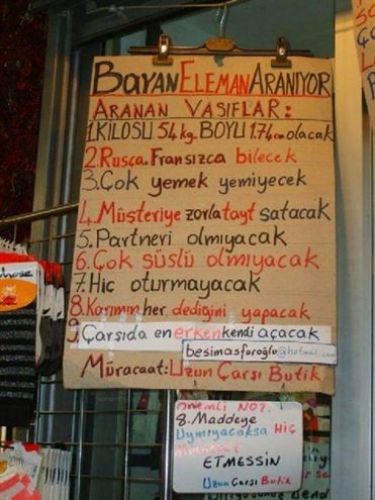 BAYAN ELEMAN ARANIYOR
ARANAN VASIFLAR:
1.KILOSU 54 kg. BOYU 1.74cm olacak
2.Rusça.Fransızca bilecek
3.Çok yemek yemiyecek
4.Müşteriye zorla tayt satacak
5.Partneri olmıyacak
6.Çok süslü olmıyacak
7.Hiç oturmayacak
8.Karımın her dediğini yapacak
9.Çarşıda en erken kendi açacak
besimasfuroğlu@hotmail.com
Müracaat:Uzun Çarşı Butik
Önemli NOT:
8.Maddeye
Uymıyacaksa Hiç
ETMESSİN
Uzun Çarşı Butik